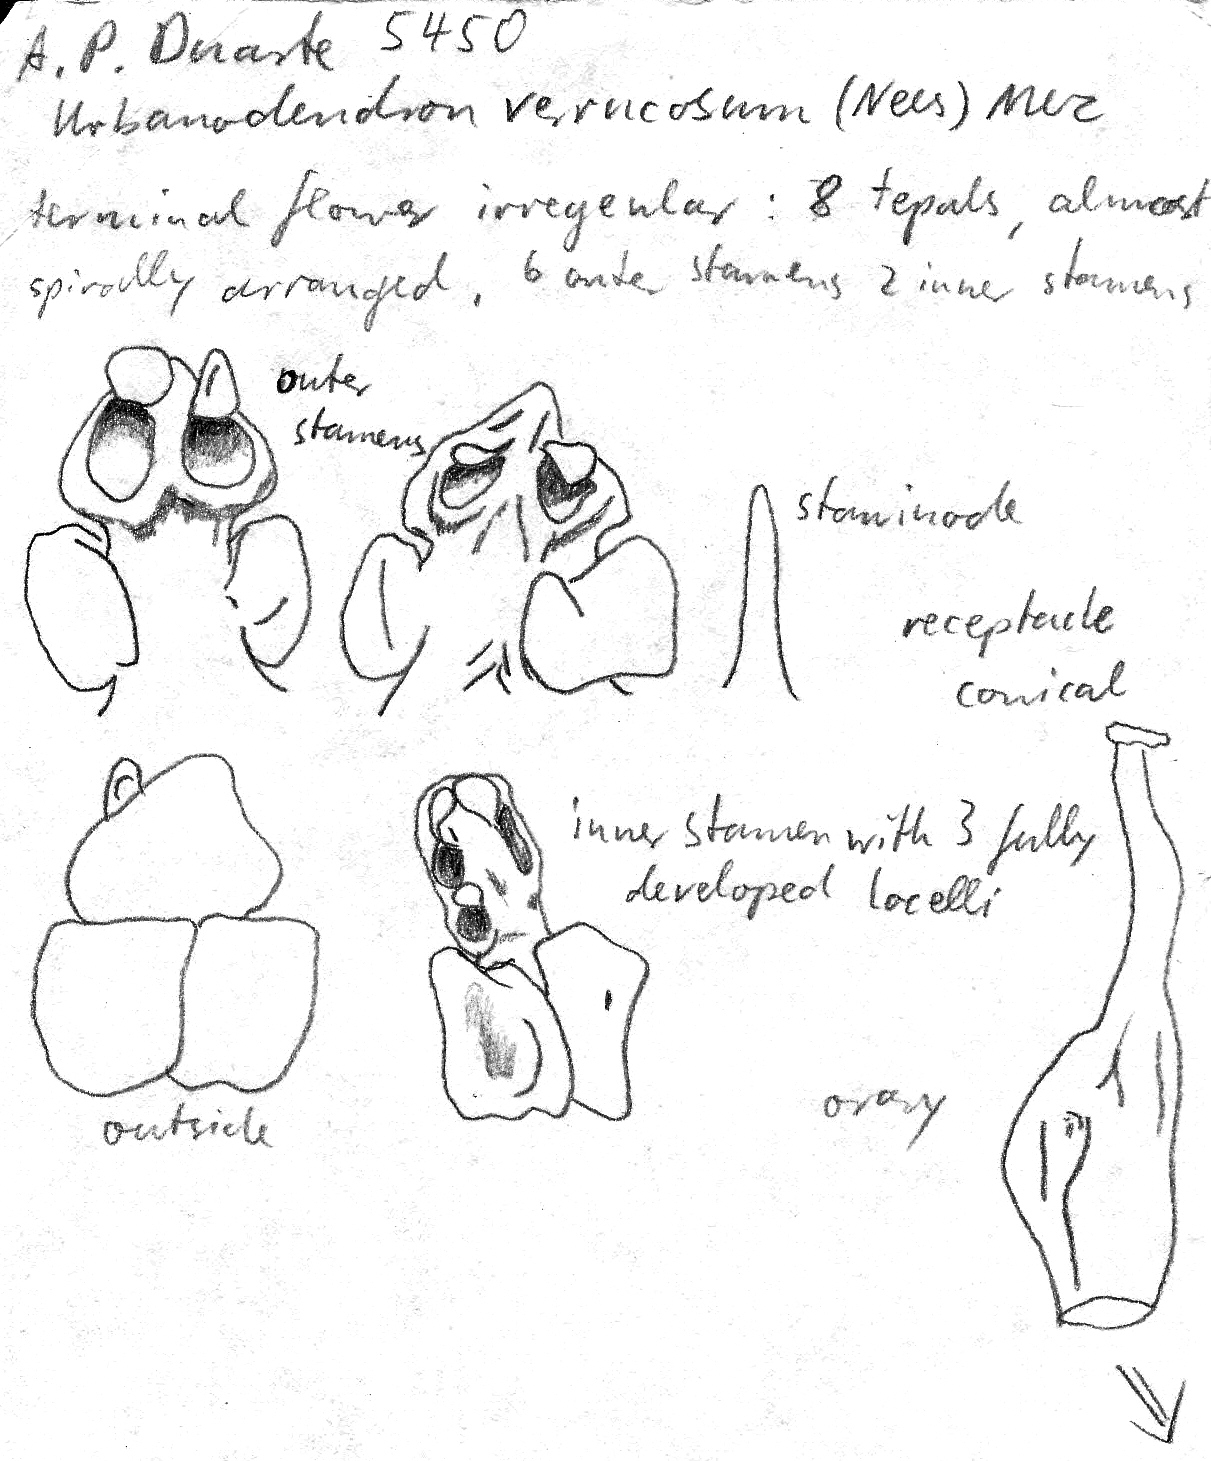 A. P. Duarte 5450
Urbanodendron verrucosum (Nees) Mez
terminal flower irregular : 8 tepals, almost
spirally arranged, 6 outer stamens 2 inner stamens
outer
stamens
staminode
receptacle
conical
inner stamen with 3 fully
developed locelli
outside
ovary